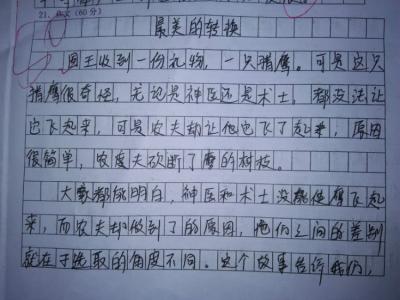 21、作文(60分)
最美的转换
国王收到一份礼物，一只猎鹰。可是这只
猎鹰很奇怪，无论是神医还是术士，都没法让
它飞起来，可是农夫却让他飞了起来，原因
很简单，农夫砍断了鹰的树枝。
大家都能明白，神医和术士没能使鹰飞起
来，而农夫却做到了的原因，他们之间的差别
就在于选取的角度不同。这个故事告诉我们，